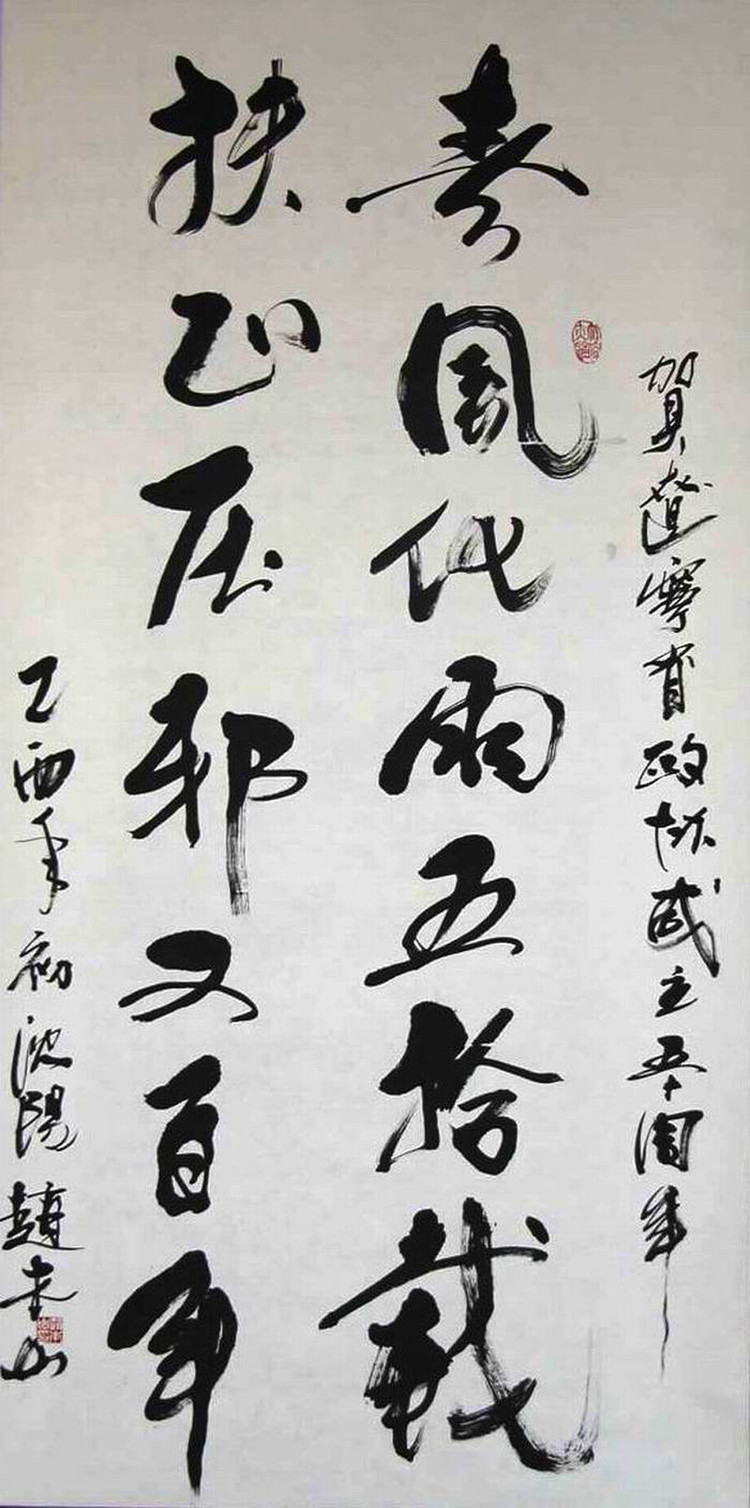 賀遼寧省政協成立五十周年
春風化雨五拾載
扶正压邪又百年
乙酉年初沈陽趙山